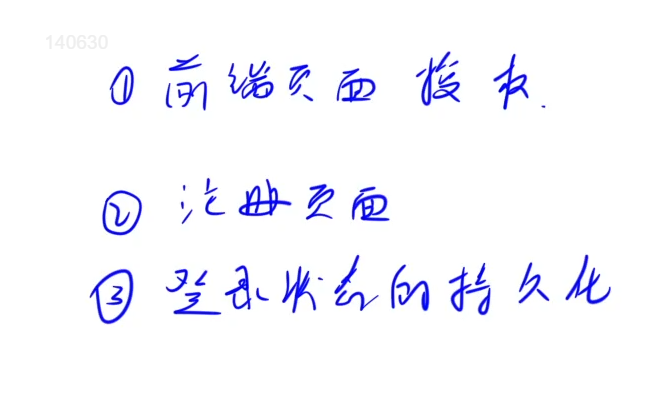 140630
① 前端页面 授权.
② 注册页面
③ 登录状态的持久化